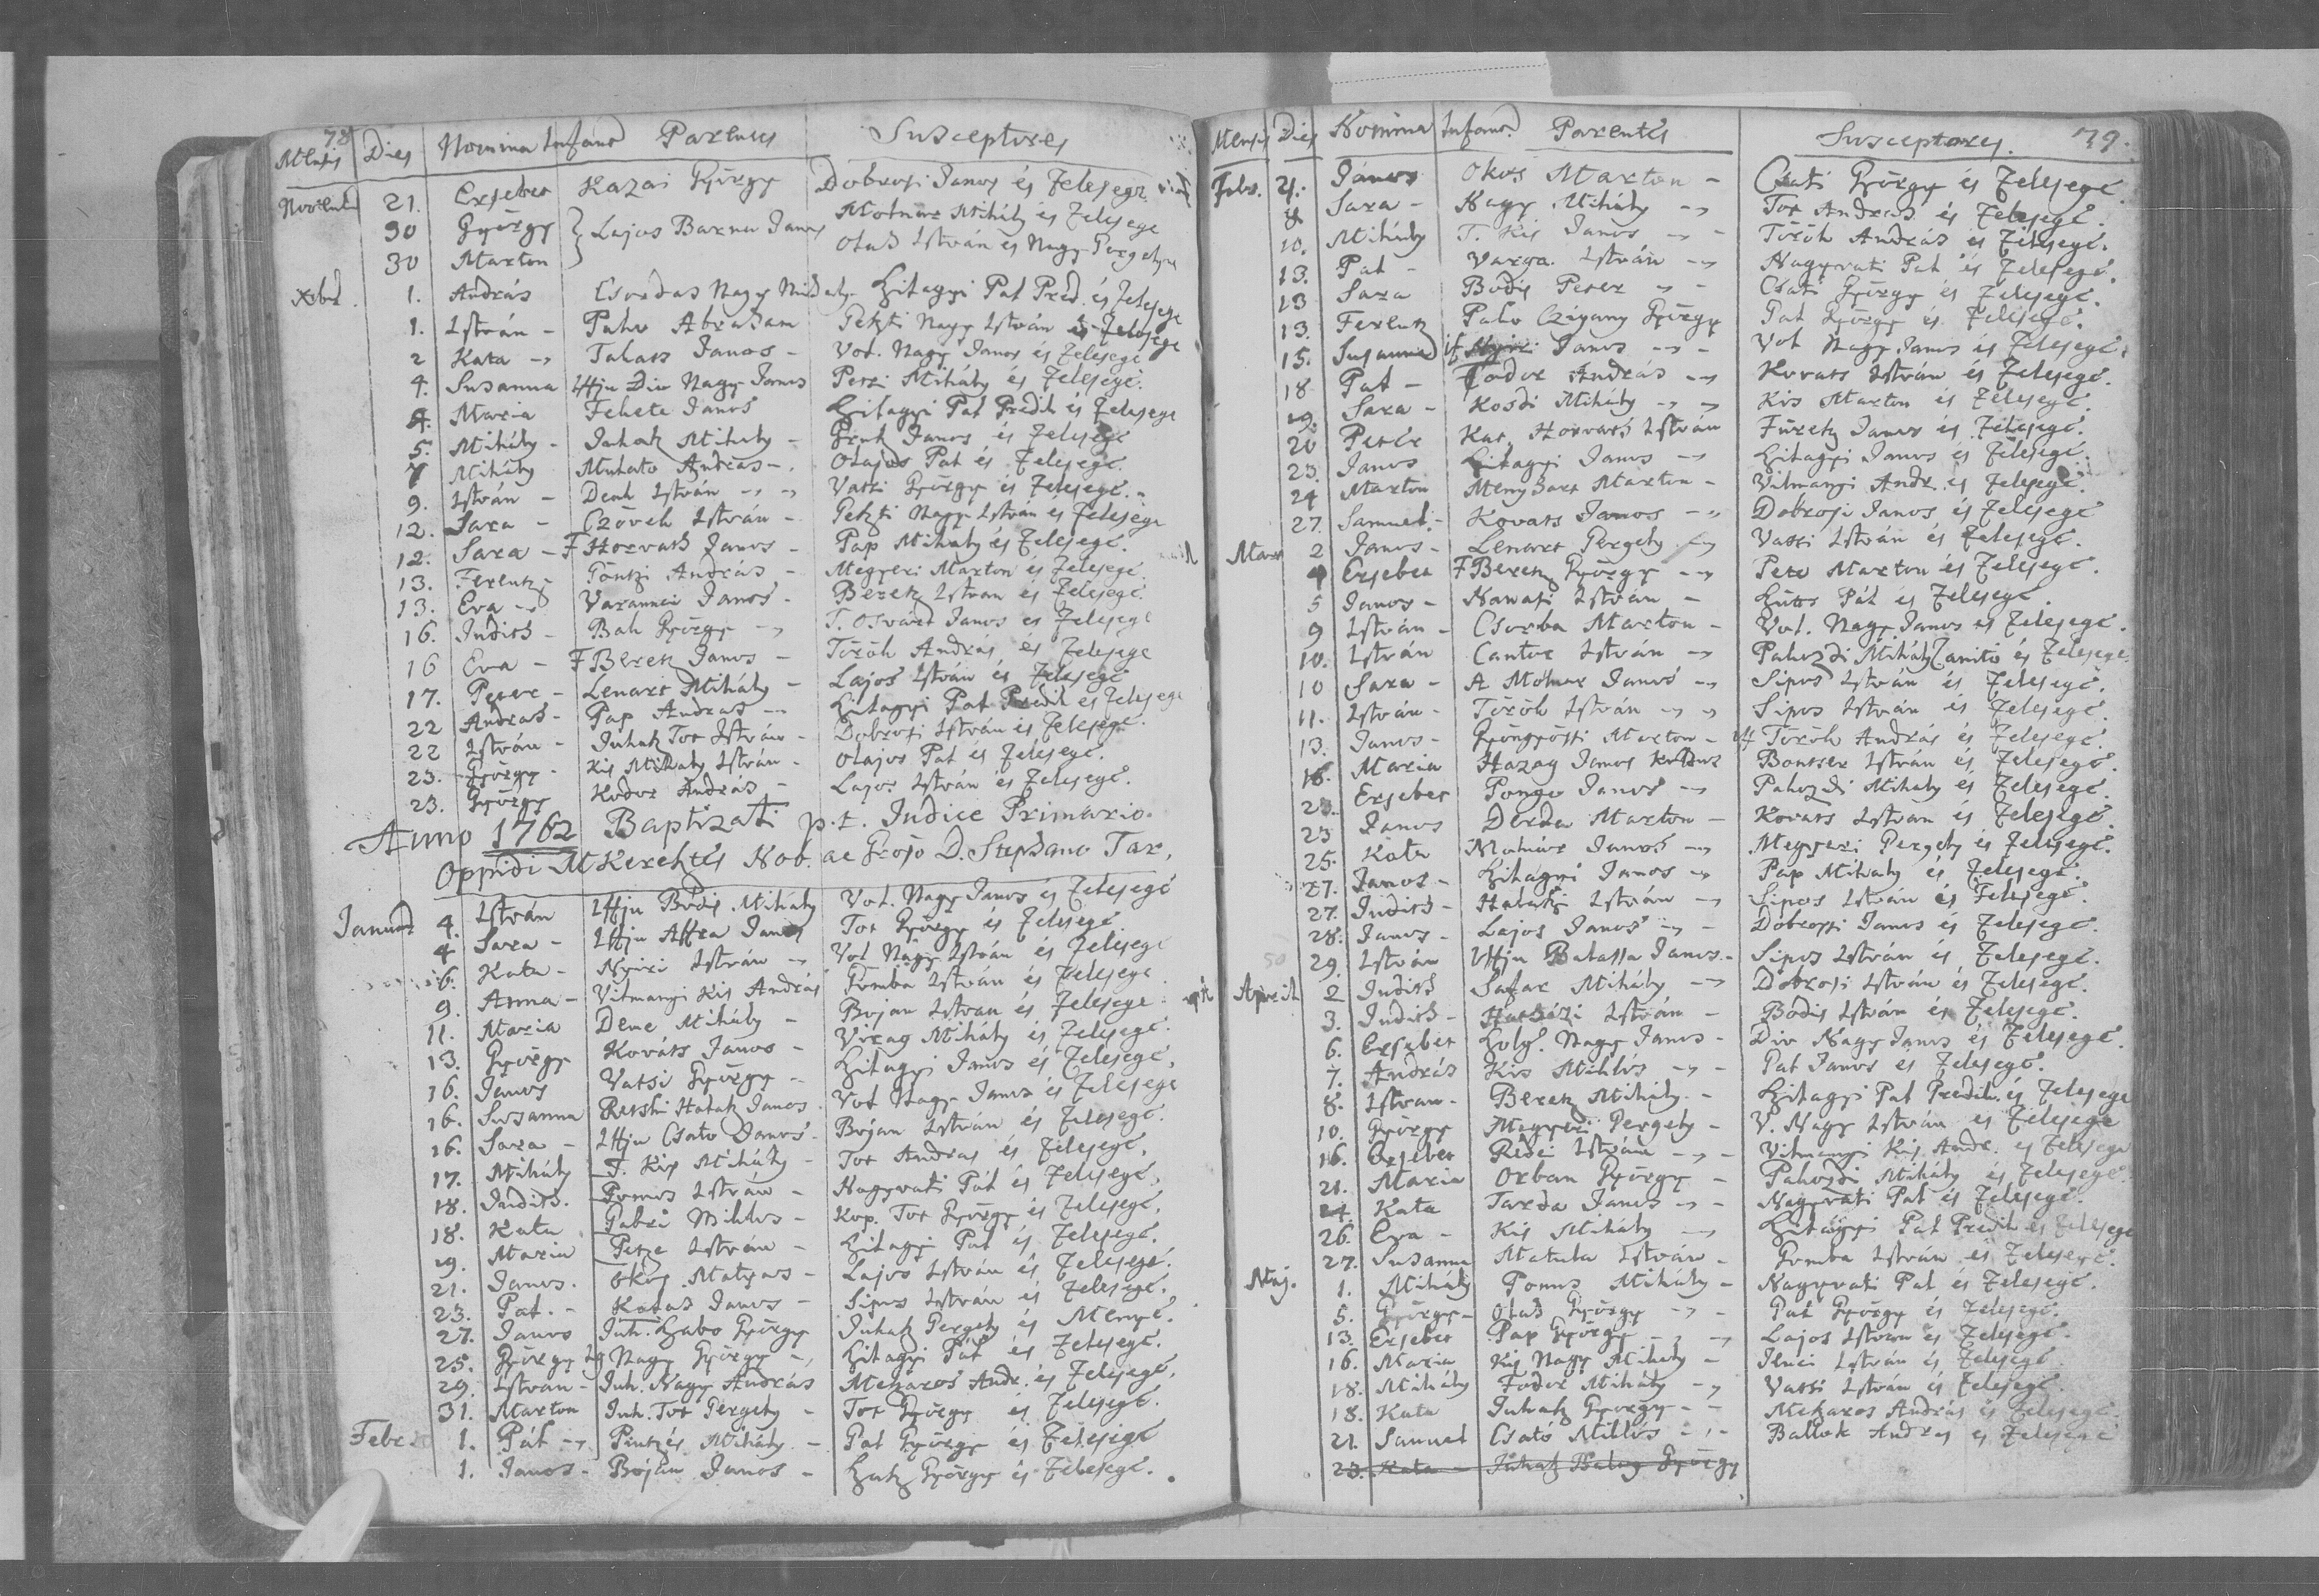 78
Mensis Dies Nomina Infans Parentes Susceptores
Novemb 21. Ersebet Kazai György Dobrosi Janos és Felesege
30 György Lajos Barna Janos Molnar Mihály és Felesege
30 Marton Olah István és Nagy Gergelyne
Xbr. 1. András Csordas Nagy Mihaly Szilagyi Pal Pred. és Felesege
1. István - Palco Abraham Petzti Nagy István és Felesege
2 Kata Talasz Janos - Vot. Nagy Janos és Felesege
4. Susanna Iffju Div Nagy Janos Petzi Mihály és Felesege.
4. Maria Fekete Janos Szilagyi Pal Predik és Felesege
5. Mihály - Juhatz Mihaly - Janos és Felesege
7 Mihály Mulato András - Olajos Pal és Felesege.
9. István - Deak István Vatsi György és Felesege.
12. Sara - Czövek István - Petzti Nagy Istvan és Felesege
12. Sara - F Horvath Janos - Pap Mihaly és Felesege.
13. Ferentz Göntzi András - Megyeri Marton és Felesege.
13. Eva Varannai Janos - Beretz Istvan és Felesege.
16. Judith - Bak György T. Osváth Janos és Felesege
16 Eva - F Beretz Janos - Török András és Felesege
17. Peter - Lenart Mihály - Lajos István és Felesege
22 Andras - Pap Andras Szilagyi Pal Predik és Felesege
22 István - Juhatz Tot István - Dobrosi István és Felesege.
23. György - Kis Mihaly István - Olajos Pal és Felesege.
23. György Kodor András - Lajos István és Felesege.
Anno 1762 Baptizati p.t. Judice Primario
Oppidi MKeresztes Nob. ac Groso D. Stephano Tar,
Januar 4. István Iffju Bodis Mihály Vot. Nagy Janos és Felesege
4 Sara - Iffju Affra Janos Tot György és Felesege.
6. Kata - Nyiri István Vot Nagy István és Felesege
9. Anna - Vilmanyi Kis András Gomba István és Felesege
11. Maria Dene Mihály - Bojan Istvan és Felesege
13. György Kováts Janos - Virag Mihály és Felesege.
16. Janos Vatsi György - Szilagyi Janos és Felesege,
16. Susanna Retski Halatz Janos Vot Nagy Janos és Felesege
16. Sara - Iffju Csato Janos - Bojan István és Felesege.
17. Mihály T. Kis Mihály - Tot Andras és Felesege,
18. Judith. Pomus István - Nagyvati Pál és Felesege,
18. Kata Gabri Miklos - Kop. Tot György és Felesege,
19. Maria Petze István - Szilagyi Pal és Felesege.
21. Janos. Okos Matyas - Lajos István és Felesege.
23. Pal. - Kalas Janos - Sipos István és Felesege.
27. Janos Juh. Szabo György Juhatz Gergely és Menye.
25. György Nagy György Szilagyi Pal és Felesege.
29. Istvan - Juh. Nagy András Mezaros Andr. és Felesege,
31. Marton Juh. Tot Gergely - Tot György és Felesege.
Febr 1. Pál Pintzés Mihály - Pal György és Felesege
1. Janos - Bojan Janos - Szatz György és Felesege.
79.
Mensis Dies Nomina Infans. Parentes Susceptores.
Febr. 4. János Okos Marton - Csati György és Felesege.
8 Sara - Nagy Mihály Tot Andras és Felesege.
10. Mihály T. Kis Janos Török András és Felesege.
13. Pal - Varga István Nagyvati Pal és Felesege.
13 Sara Bodis Peter Csati György és Felesege.
13. Ferentz Palco Czigany György Pal György és Felesege.
15. Susanna if Nyiri Janos Vot Nagy Janos és Felesege.
18 Pal - Fodor András Kovats István és Felesege.
19. Sara - Kosdi Mihály Kis Marton és Felesege.
20 Peter Kat. Horvath István Füretz Janos és Felesege.
23. Janos Szilagyi Janos Szilagyi Janos és Felesege.
24 Marton Menyhart Marton - Vilmanyi Andr. és Felesege.
27. Samuel. Kovats Janos Dobrosi Janos és Felesege
Mart 2 Janos - Lenart Gergely Vatsi István és Felesege.
4 Ersebet F Beretz György Pete Marton és Felesege.
5 Janos - István - Szüts Pál és Felesege.
9 István - Csorba Marton - Vot. Nagy Janos és Felesege.
10. István Cantor István Palvzdi Mihály Tanito és Felesege.
10 Sara - A Molnar Janos Sipos István és Felesege.
11. István - Török István Sipos István és Felesege.
13. Janos - Gyöngyössi Marton - if Török András és Felesege.
16. Maria Hazag Janos Bontzer István és Felesege.
23. Ersebet Pongo Janos Palvzdi Mihaly és Felesege.
23 Janos Derda Marton - Kovats István és Felesege.
25. Kata Molnár Janos Megyeri Gergely és Felesege.
27. Janos - Szilagyi Janos Pap Mihaly és Felesege.
27. Judith - Halatz István Sipos István és Felesege.
28. Janos - Lajos Janos Dobrossi Janos és Felesege.
29. István Iffju Balassa Janos. - Sipos István és Felesege.
April 2 Judith Safar Mihály Dobrosi István és Felesege.
3. Judith - Hathazi István - Bodis István és Felesege.
6. Ersebet Szolg. Nagy Janos - Div Nagy Janos és Felesege.
7. András Kis Miklós Pal Janos és Felesege.
8. Istvan - Beretz Mihály. - Szilagyi Pal Predik. és Felesege
10. György Megyeri Gergely - V. Nagy István és Felesege
16. Ersebet Rédei István Vilmanyi Kis Andr. és Felesege
21. Maria Orban György - Palvzdi Mihály és Felesege.
24 Kata Tarda Janos Nagyvati Pal és Felesege.
26. Eva - Kis Mihály Szilágyi Pal Predik és Felesege
27. Susanna Matula Istvan - Gomba István és Felesege.
Maj. 1. Mihály Pomus Mihály - Nagyvati Pal és Felesege.
5. György - Olah György Pal György és Felesege.
13. Ersebet Pap György Lajos István és Felesege.
16. Maria Kis Nagy Mihaly - István és Felesege
18. Mihály Fodor Mihály Vatsi István és Felesege
18. Kata Juhatz György - Mezaros András és Felesege.
21. Samuel Csató Miklós Ballok Andras és Felesege
23. Kata - Juhatz Balog György